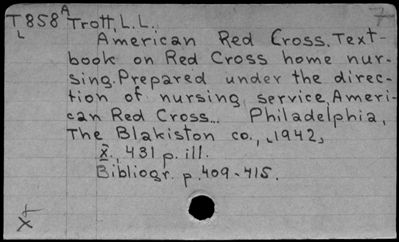 T858 A Trott, L.L. 7
L
American Red Cross. Text-
book on Red Cross home nur-
sing. Prepared under the direc-
tion of nursing service, Ameri-
can Red Cross... Philadelphia,
The Blakiston co., [1942]
X, 431 p. ill.
Bibliogr. p. 409-415.
X